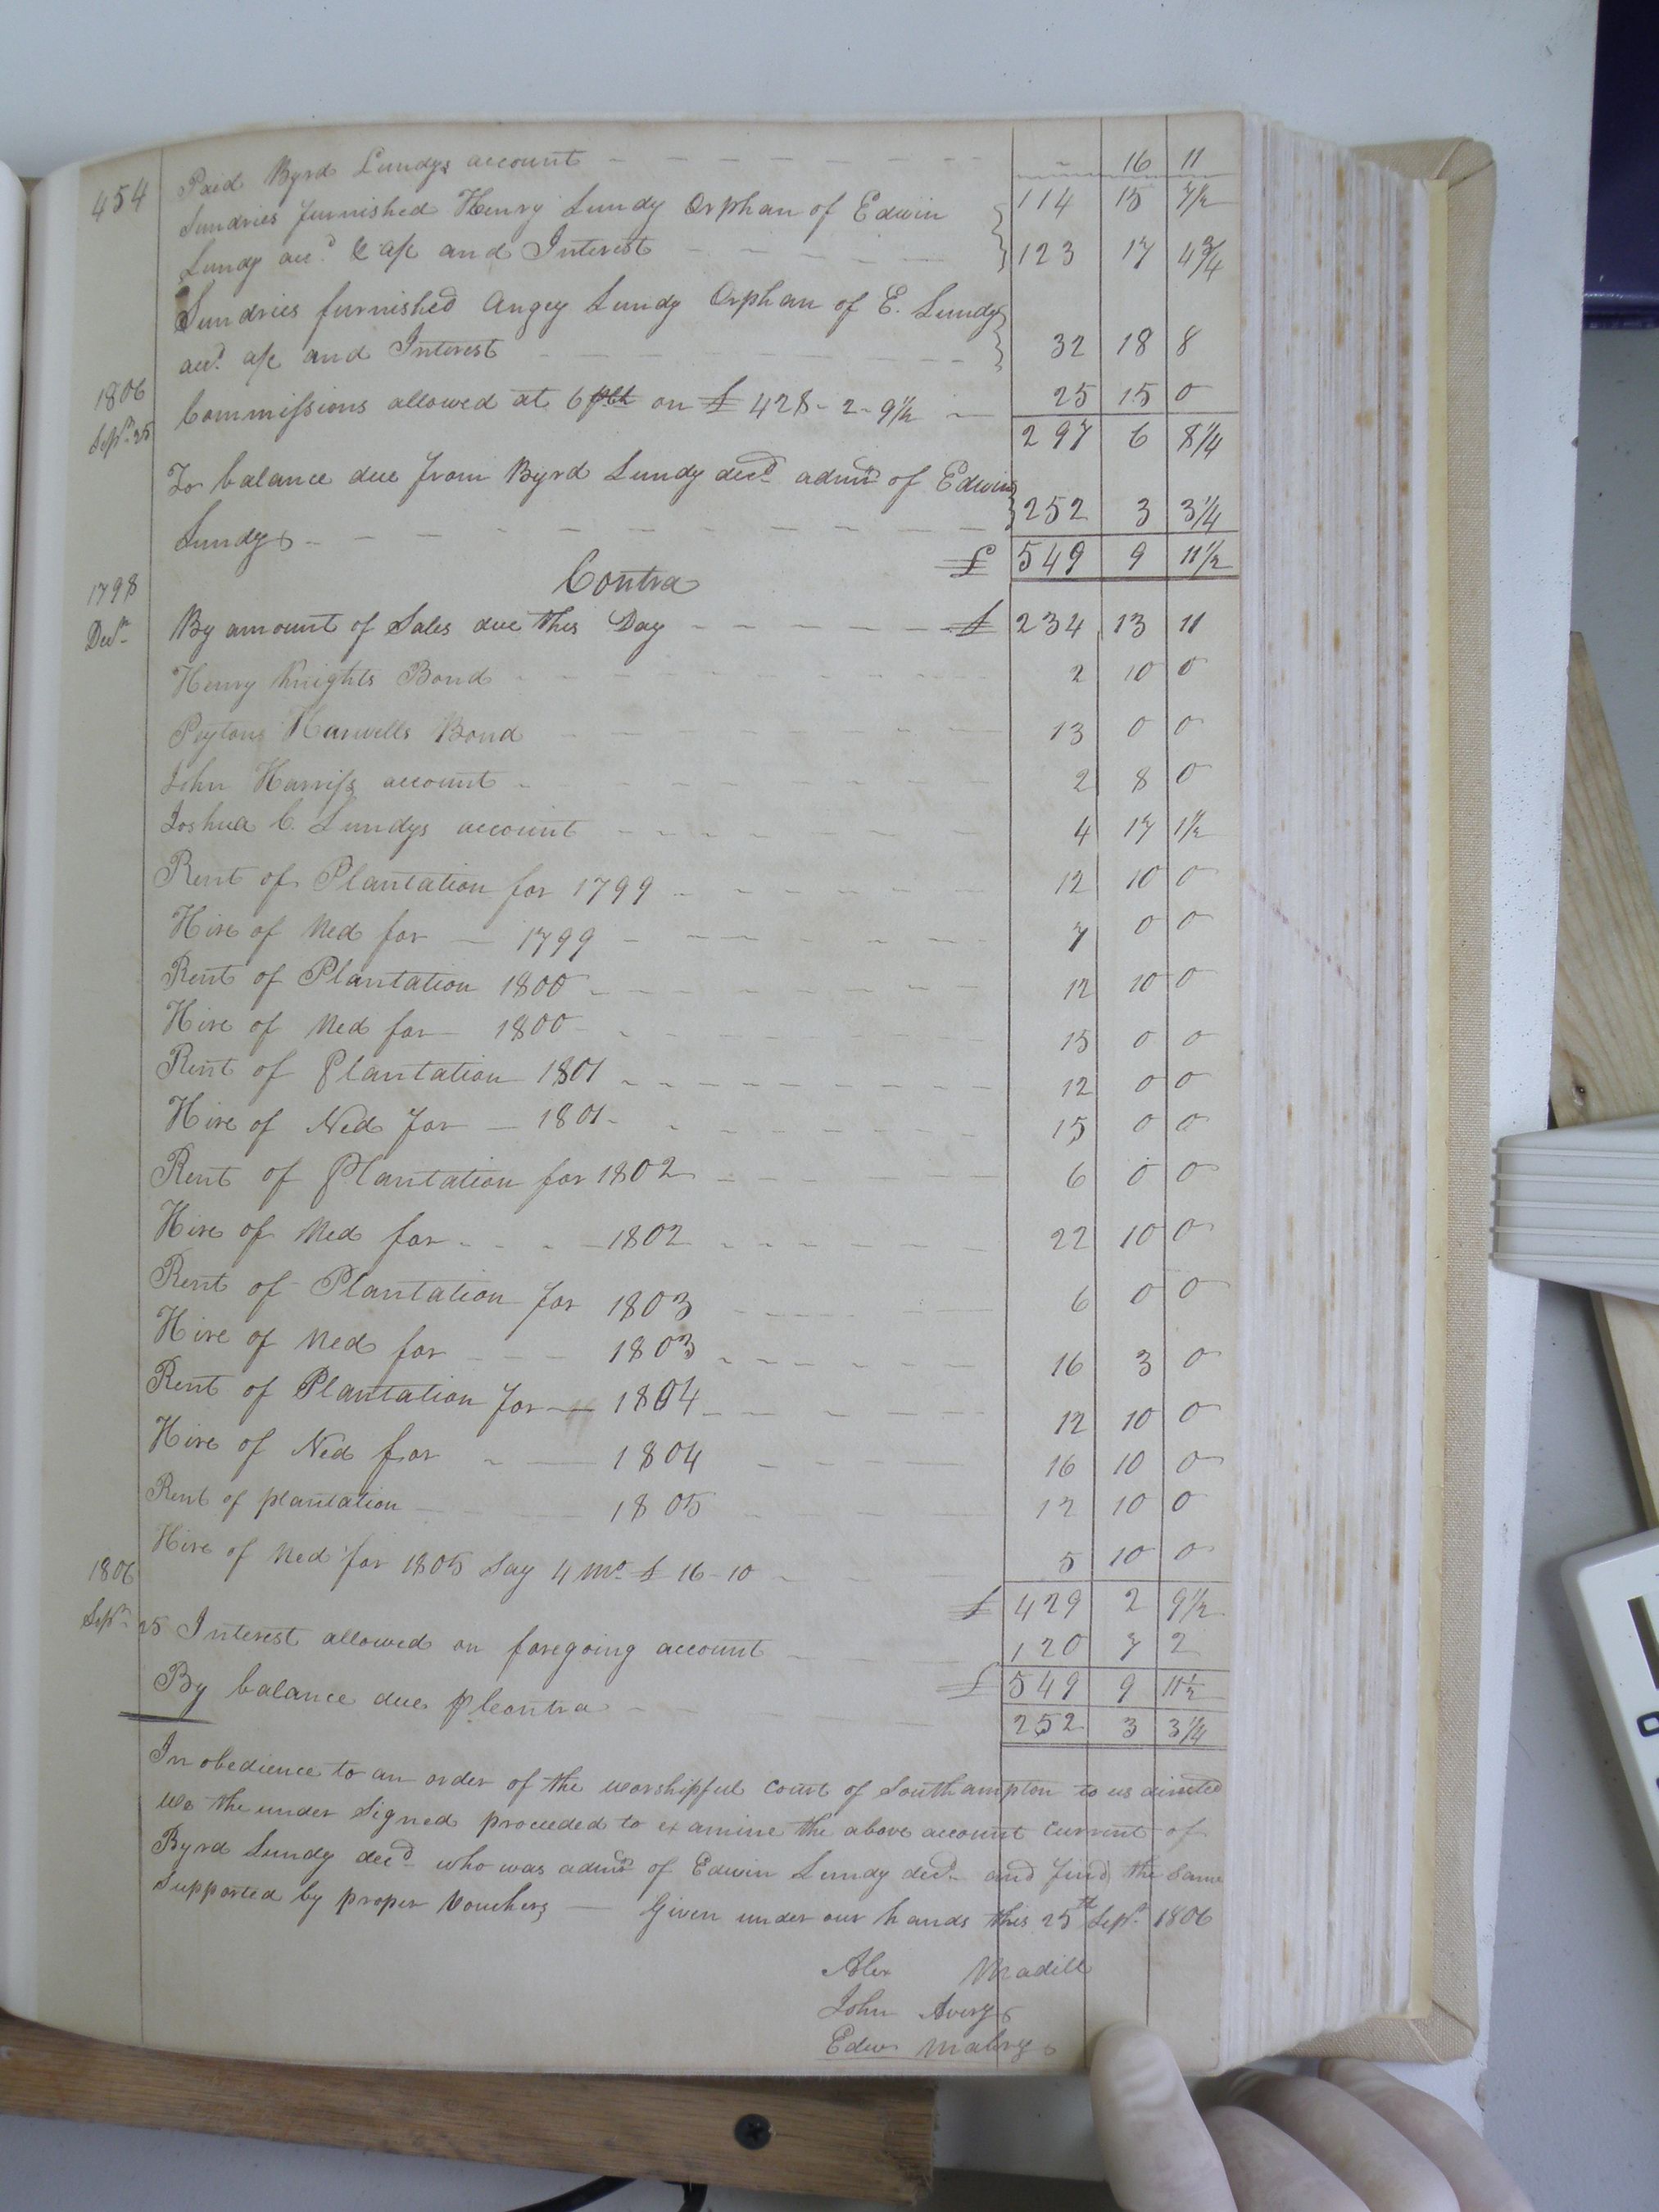 454 Paid Byrd Lundys account 16 11
Sundries furnished Henry Lundy Orphan of Edwin 114 15 7½
Lundy acc.d a/c and Interest 123 17 4¾
Sundries furnished Angey Lundy Orphan of E. Lundy
acc.d a/c and Interest 32 18 8
1806
Sepr. 25 Commissions allowed at 6 pct on £ 428 - 2 - 9½ 25 15 0
297 6 8¼
To balance due from Byrd Lundy decd. admr. of Edwin
Lundy 252 3 3¼
£ 549 9 11½
Contra
1798
Decr. By amount of Sales due this Day £ 234 13 11
Henry Knights Bond 2 10 0
Peytons Harwells Bond 13 0 0
John Harriss account 2 8 0
Joshua C. Lundys account 4 17 1½
Rent of Plantation for 1799 12 10 0
Hire of Ned for 1799 7 0 0
Rent of Plantation 1800 12 10 0
Hire of Ned for 1800 15 0 0
Rent of Plantation 1801 12 0 0
Hire of Ned for 1801 15 0 0
Rent of Plantation for 1802 6 0 0
Hire of Ned for 1802 22 10 0
Rent of Plantation for 1803 6 0 0
Hire of Ned for 1803 16 3 0
Rent of Plantation for 1804 12 10 0
Hire of Ned for 1804 16 10 0
Rent of plantation 1805 12 10 0
Hire of Ned for 1805 Say 4 mo. £ 16 - 10 5 10 0
1806 £ 429 2 9½
Sepr. 25 Interest allowed on foregoing account 120 7 2
£ 549 9 11½
By balance due p contra 252 3 3¼
In obedience to an order of the worshipful court of Southampton to us directed
We the under Signed proceeded to examine the above account Current of
Byrd Lundy decd. who was admr. of Edwin Lundy decd. and find the Same
Supported by proper Vouchers — Given under our hands this 25th Sepr. 1806
Alex Madill
John Avery
Edw. Mabry